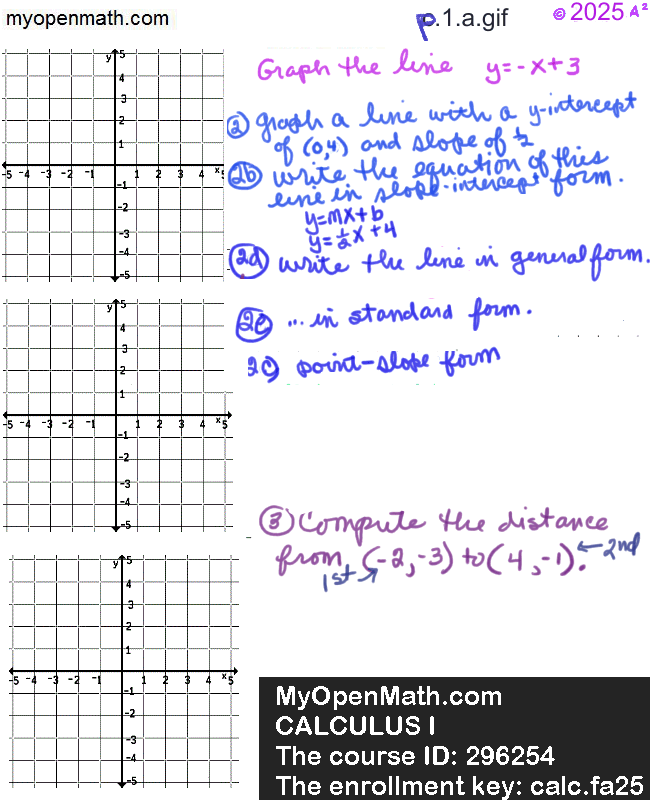 myopenmath.com
p.1.a.gif
© 2025 A²
Graph the line y=-x+3
② graph a line with a y-intercept
of (0,4) and slope of ½
②b write the equation of this
line in slope-intercept form.
y=mx+b
y=½x+4
②d write the line in general form.
②e ... in standard form.
2c) point-slope form
③ Compute the distance
from (-2,-3) to (4,-1). ←2nd
1st↗
y 5
4
3
2
1
-5 -4 -3 -2 -1 1 2 3 4 x 5
-1
-2
-3
-4
-5
y 5
4
3
2
1
-5 -4 -3 -2 -1 1 2 3 4 x 5
-1
-2
-3
-4
-5
y 5
4
3
2
1
-5 -4 -3 -2 -1 1 2 3 4 x 5
-1
-2
-3
-4
-5
MyOpenMath.com
CALCULUS I
The course ID: 296254
The enrollment key: calc.fa25